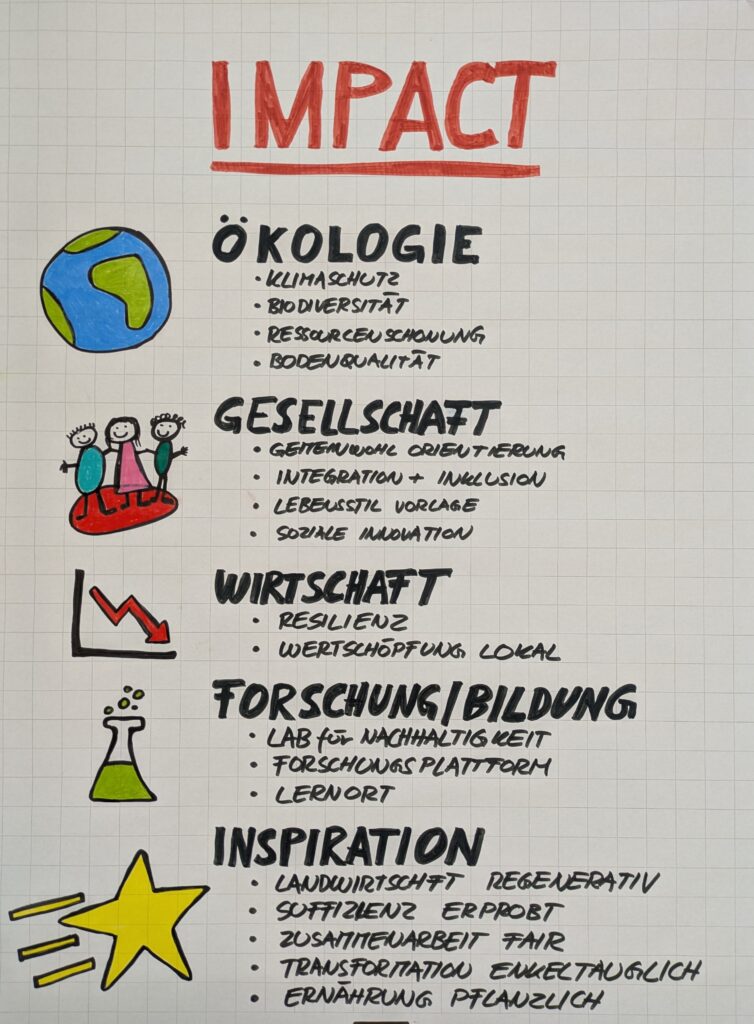 IMPACT
ÖKOLOGIE
• KLIMASCHUTZ
• BIODIVERSITÄT
• RESSOURCENSCHONUNG
• BODENQUALITÄT
GESELLSCHAFT
• GEMEINWOHL ORIENTIERUNG
• INTEGRATION + INKLUSION
• LEBENSSTIL VORLAGE
• SOZIALE INNOVATION
WIRTSCHAFT
• RESILIENZ
• WERTSCHÖPFUNG LOKAL
FORSCHUNG/BILDUNG
• LAB für NACHHALTIGKEIT
• FORSCHUNGSPLATTFORM
• LERNORT
INSPIRATION
• LANDWIRTSCHAFT REGENERATIV
• SUFFIZIENZ ERPROBT
• ZUSAMMENARBEIT FAIR
• TRANSFORMATION ENKELTAUGLICH
• ERNÄHRUNG PFLANZLICH